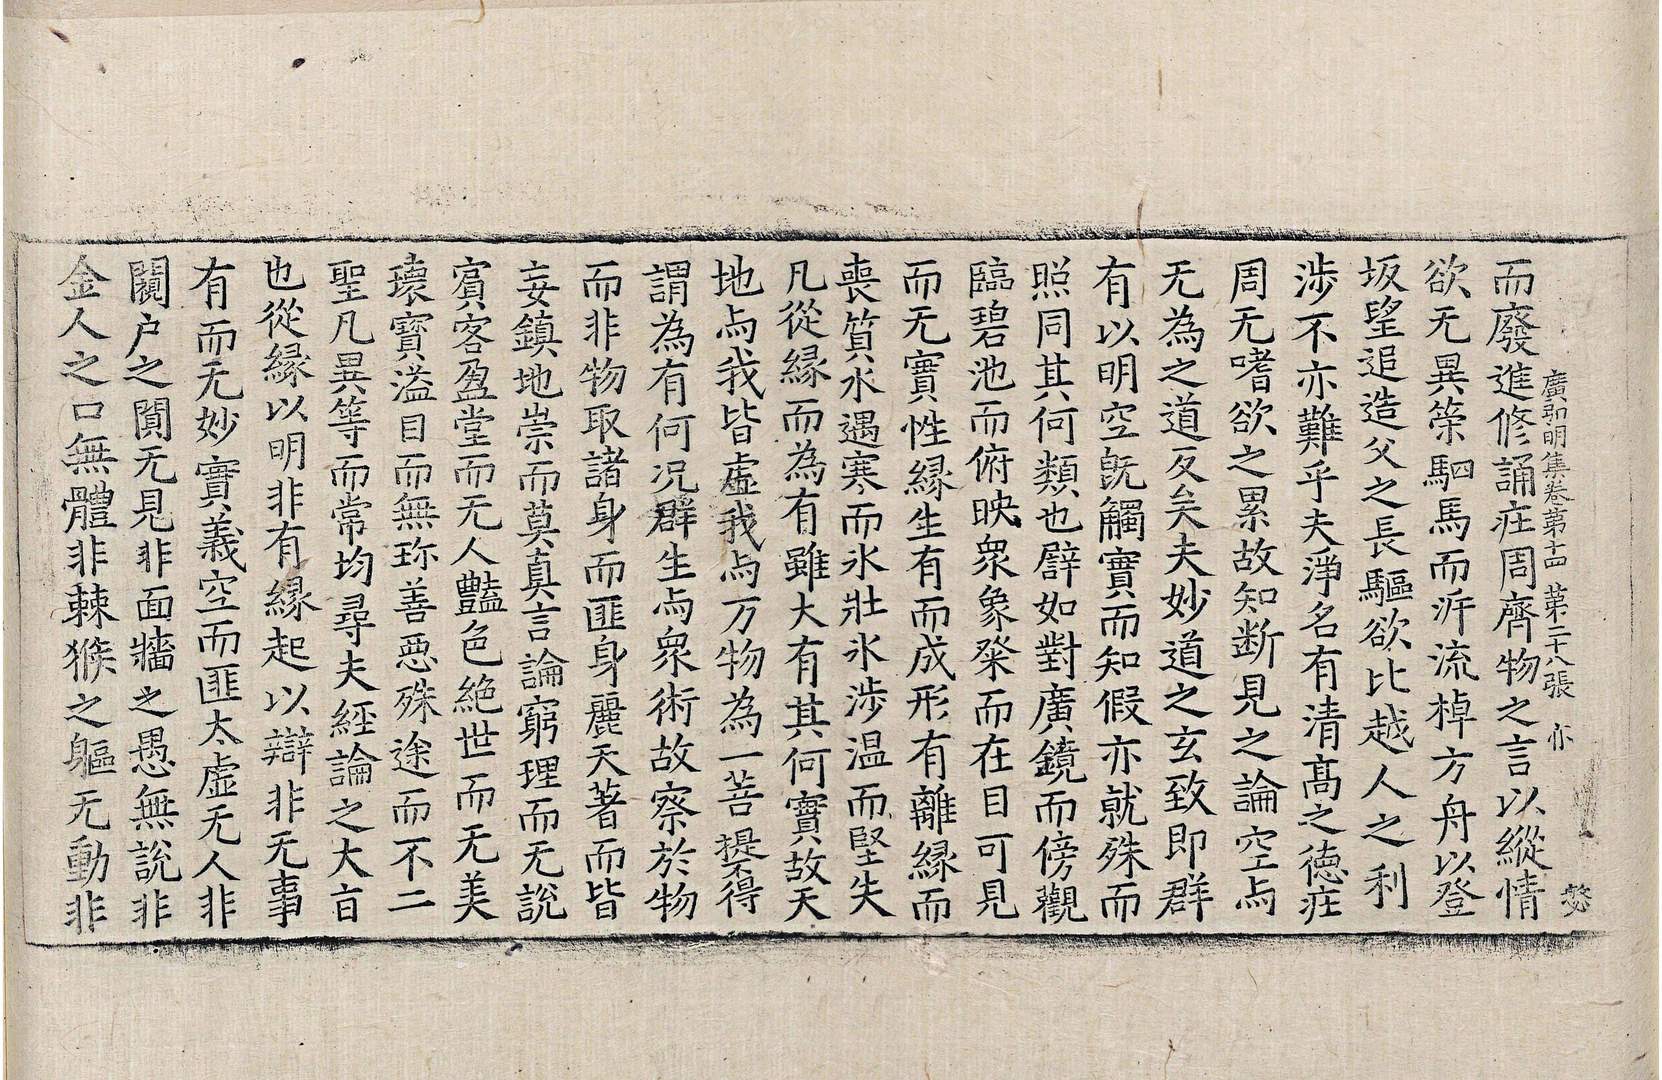 廣弘明集卷第十四 第二十八張 亦
而廢進修誦庄周齊物之言以縱情
欲无異策駟馬而泝流棹方舟以登
坂望追造父之長驅欲比越人之利
涉不亦難乎夫淨名有清髙之德庄
周无嗜欲之累故知断見之論空与
无為之道反矣夫妙道之玄致即群
有以明空既觸實而知假亦就殊而
照同其何類也譬如對廣鏡而傍觀
臨碧池而俯映衆象粲而在目可見
而无實性縁生有而成形有離縁而
喪質水遇寒而氷壯氷涉温而堅失
凡從縁而為有雖大有其何實故天
地与我皆虚我与万物為一菩提不得
謂為有何况群生与衆術故察於物
而非物取諸身而匪身麗天著而皆
妄鎮地崇而莫真言論窮理而无説
賔客盈堂而无人豔色絶世而无美
瓌寳溢目而無珎善惡殊途而不二
聖凡異等而常均尋夫經論之大㫖
也從縁以明非有縁起以辯非无事
有而无妙實義空而匪太虚无人非
闚户之闃无見非面牆之愚無說非
金人之口無體非棘猴之軀无動非